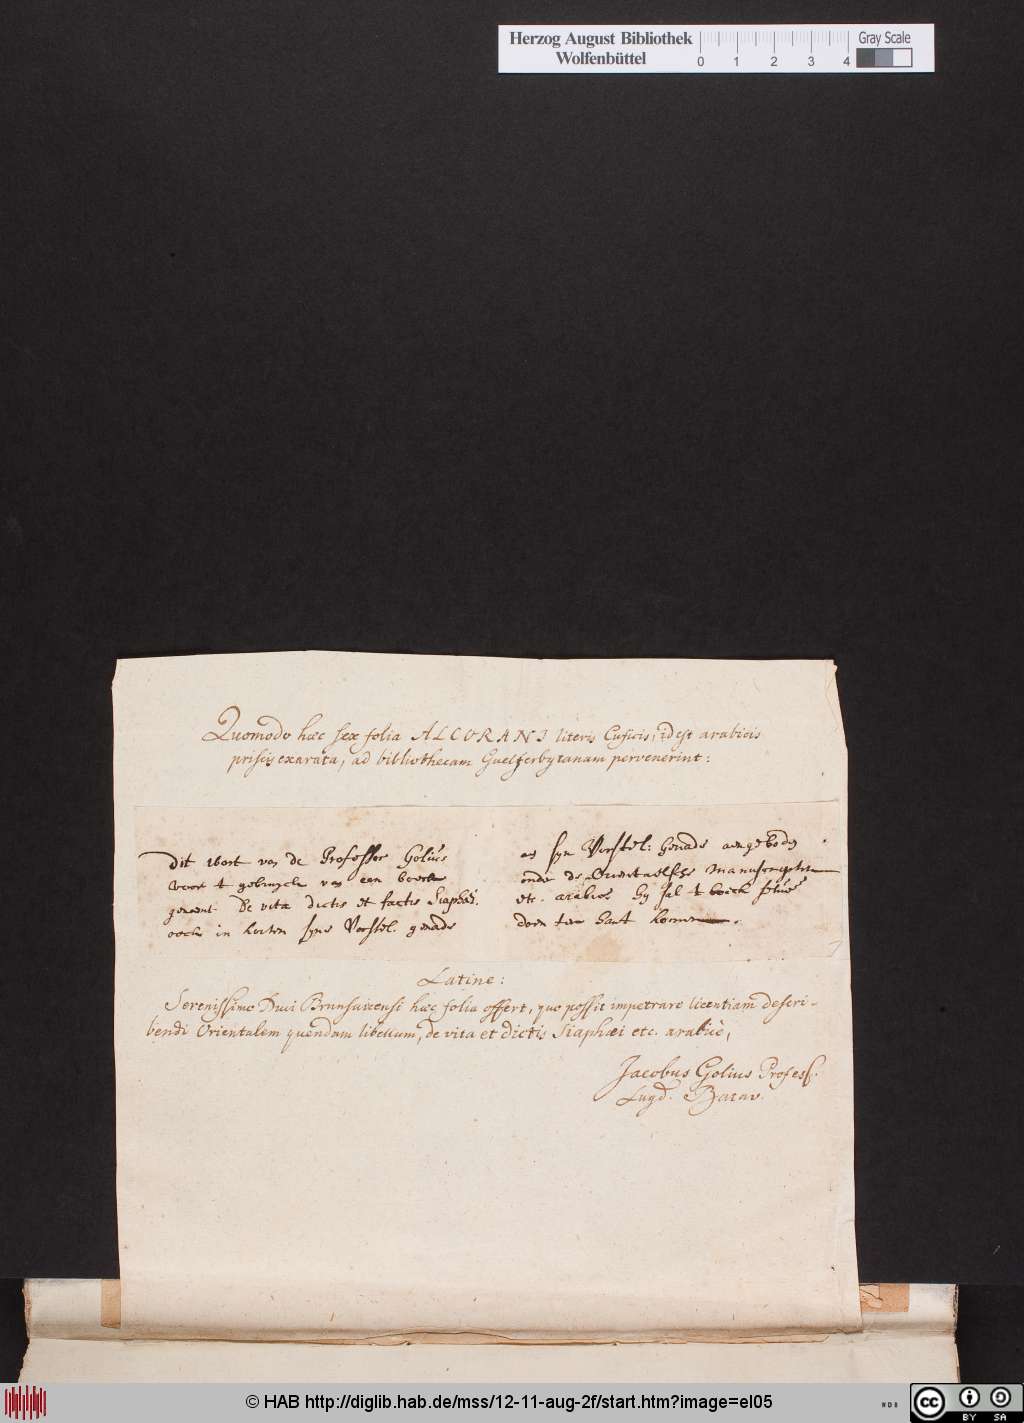 Herzog August Bibliothek
Wolfenbüttel
0 1 2 3 4
Gray Scale
Quomodo hæc sex folia ALCORANI literis Cuficis, id est arabicis
priscis exarata, ad bibliothecam Guelferbytanam pervenerint:
Dit wort van de Professor Golius
voor t gebruyck van een boeck
genaemt. De vita dictis et factis Siaphæi.
oock in hurten syne Vorstel. genade
syn Vorstel: Genade aengeboden
onder de Orientaelsche Manuscripta
etc. arabice. Hy sal t boeck
doen ter hant komen.
Latine:
Serenissimo Duci Brunsuicensi hæc folia offert, quo possit impetrare licentiam descri-
bendi Orientalem quendam libellum, de vita et dictis Siaphæi etc. arabicè,
Jacobus Golius Profess.
Lugd. Batav.
© HAB http://diglib.hab.de/mss/12-11-aug-2f/start.htm?image=el05
cc BY SA